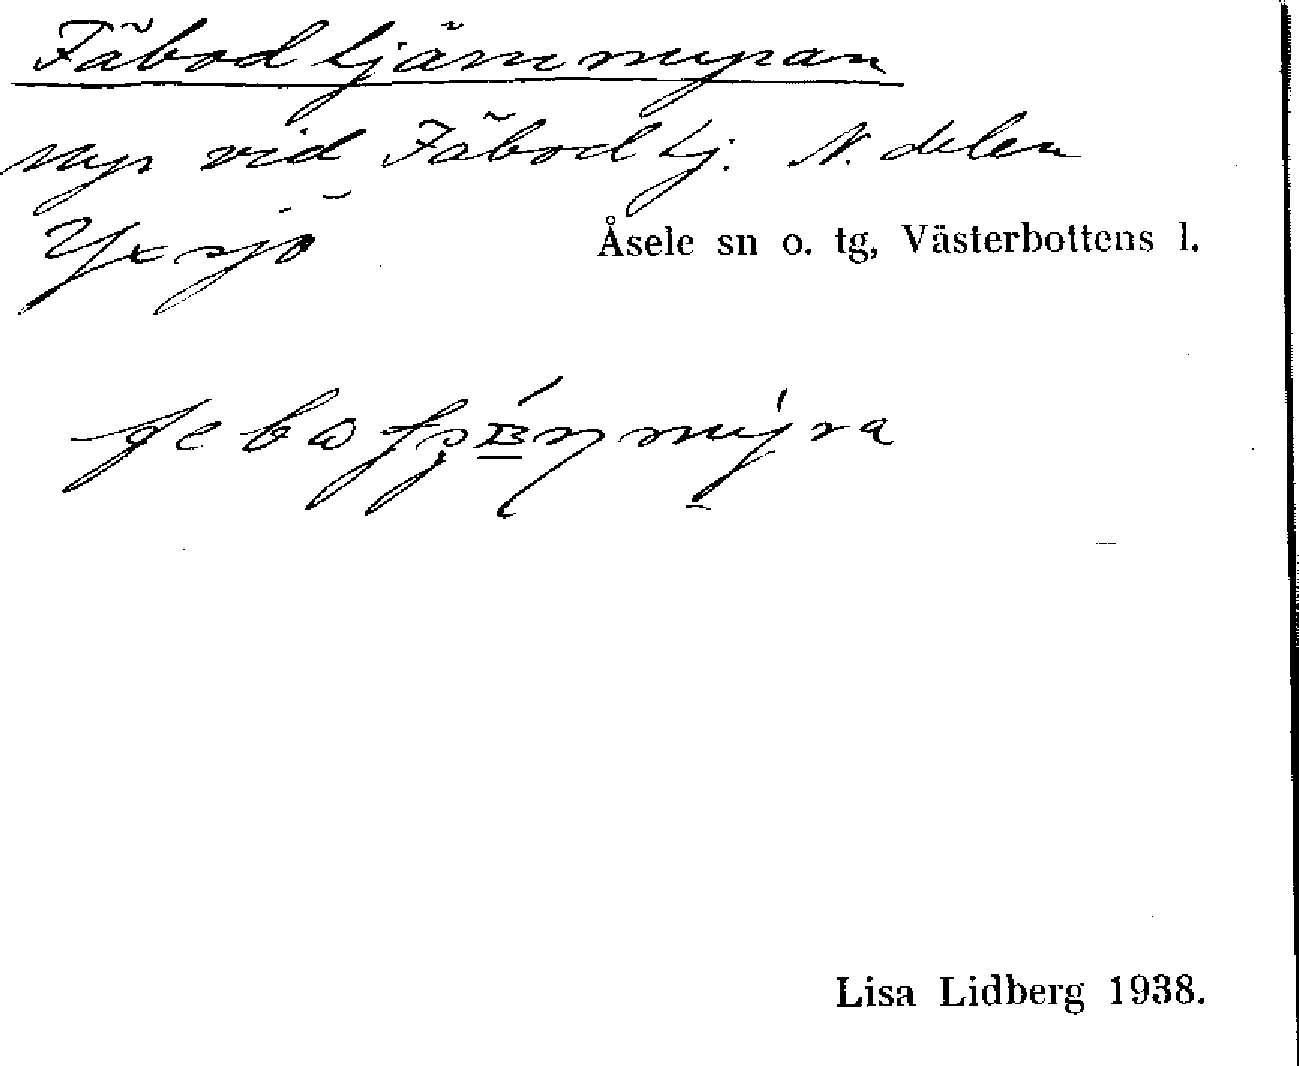 Fäbodtjärnmyran
myr vid Fäbodtj. N. delen
Yxsjö
Åsele sn o. tg, Västerbottens l.
Lisa Lidberg 1938.